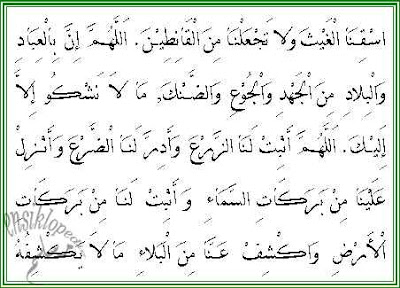 اسْقِنَا الْغَيْثَ وَلَا تَجْعَلْنَا مِنَ الْقَانِطِيْنَ. اَللّٰهُمَّ إِنَّ بِالْعِبَادِ
وَالْبِلَادِ مِنَ الْجَهْدِ وَالْجُوْعِ وَالضَّنْكِ، مَا لَا نَشْكُو إِلَّا
إِلَيْكَ. اَللّٰهُمَّ أَنْبِتْ لَنَا الزَّرْعَ وَأَدِرَّ لَنَا الضَّرْعَ وَأَنْزِلْ
عَلَيْنَا مِنْ بَرَكَاتِ السَّمَاءِ وَأَنْبِتْ لَنَا مِنْ بَرَكَاتِ
الْأَرْضِ وَاكْشِفْ عَنَّا مِنَ الْبَلَاءِ مَا لَا يَكْشِفُهُ